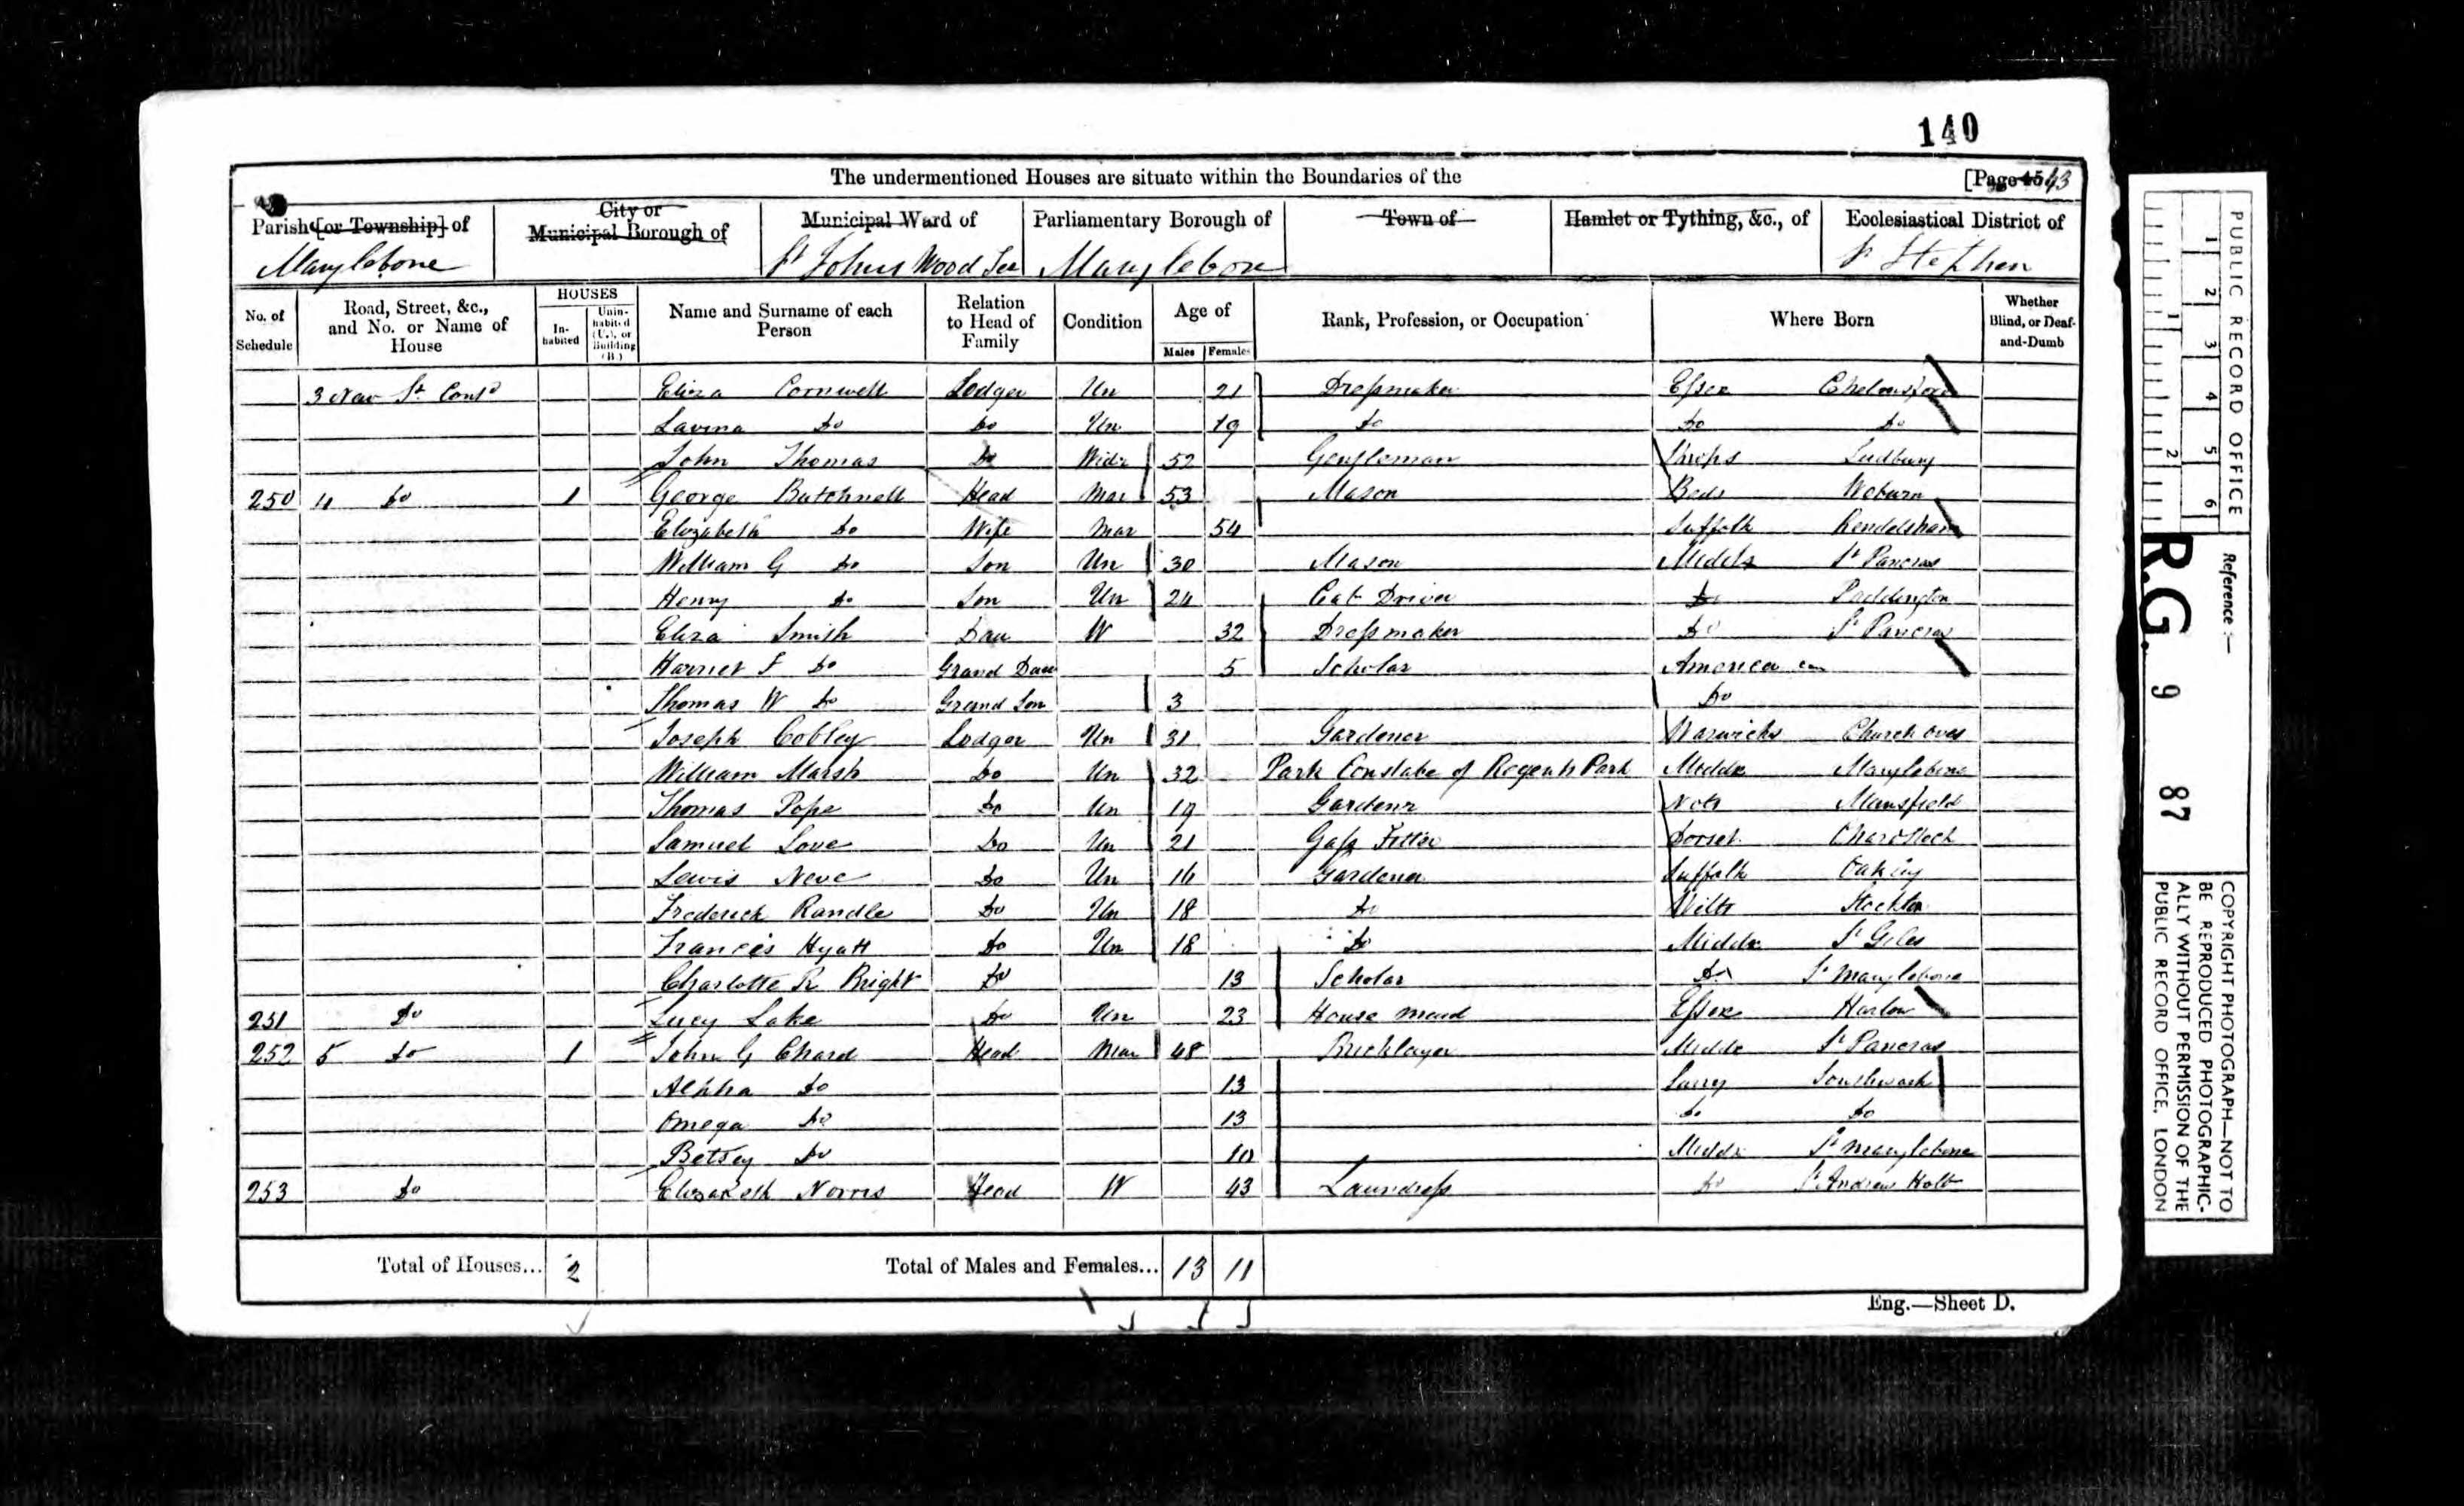 140
The undermentioned Houses are situate within the Boundaries of the [Page 45 43
Parish [or Township] of City or Municipal Borough of Municipal Ward of Parliamentary Borough of Town of Hamlet or Tything, &c., of Ecclesiastical District of
Marylebone St Johns Wood Marylebone St Stephen
No. of Schedule Road, Street, &c., and No. or Name of House HOUSES In-habited Unin-habited (U.), or Building (B.) Name and Surname of each Person Relation to Head of Family Condition Age of Males Females Rank, Profession, or Occupation Where Born Whether Blind, or Deaf-and-Dumb
3 New St Contd Eliza Cornwell Lodger Un 21 Dressmaker Essex Chelmsford
Lavina Do Do Un 19 Do Do Do
John Thomas Do Widr 52 Gentleman Shrops Ludbury
250 4 Do 1 George Butchnell Head Mar 53 Mason Beds Woburn
Elizabeth Do Wife Mar 54 Suffolk Rendelsham
William G Do Son Un 30 Mason Middx St Pancras
Henry Do Son Un 24 Cab Driver Do Paddington
Eliza Smith Dau W 32 Dressmaker Do St Pancras
Harriet F Do Grand Dau 5 Scholar America
Thomas W Do Grand Son 3 Do
Joseph Cobley Lodger Un 31 Gardener Warwicks Church Over
William Marsh Do Un 32 Park Constabe of Regents Park Middx Marylebone
Thomas Pope Do Un 19 Gardenr Nots Mansfield
Samuel Love Do Un 21 Gass Fitter Dorset Chardstock
Lewis Neve Do Un 16 Gardener Suffolk Oakley
Frederick Randle Do Un 18 Do Wilts Stockton
Francis Hyatt Do Un 18 Do Middx St Giles
Charlotte R Bright Do 13 Scholar Do St Marylebone
251 Do Lucy Lake Do Un 23 House Maid Essex Harlow
252 5 Do 1 John G Chard Head Mar 48 Bricklayer Middx St Pancras
Alpha Do 13 Surry Southwark
Omega Do 13 Do Do
Betsey Do 10 Middx St Marylebone
253 Do Elizabeth Norris Head W 43 Laundress Do St Andrew Holb
Total of Houses... 2 Total of Males and Females... 13 11
Eng.—Sheet D.
PUBLIC RECORD OFFICE
1 2 3 4 5 6
1 2
Reference :—
R.G. 9 87
COPYRIGHT PHOTOGRAPH—NOT TO
BE REPRODUCED PHOTOGRAPHIC-
ALLY WITHOUT PERMISSION OF THE
PUBLIC RECORD OFFICE, LONDON